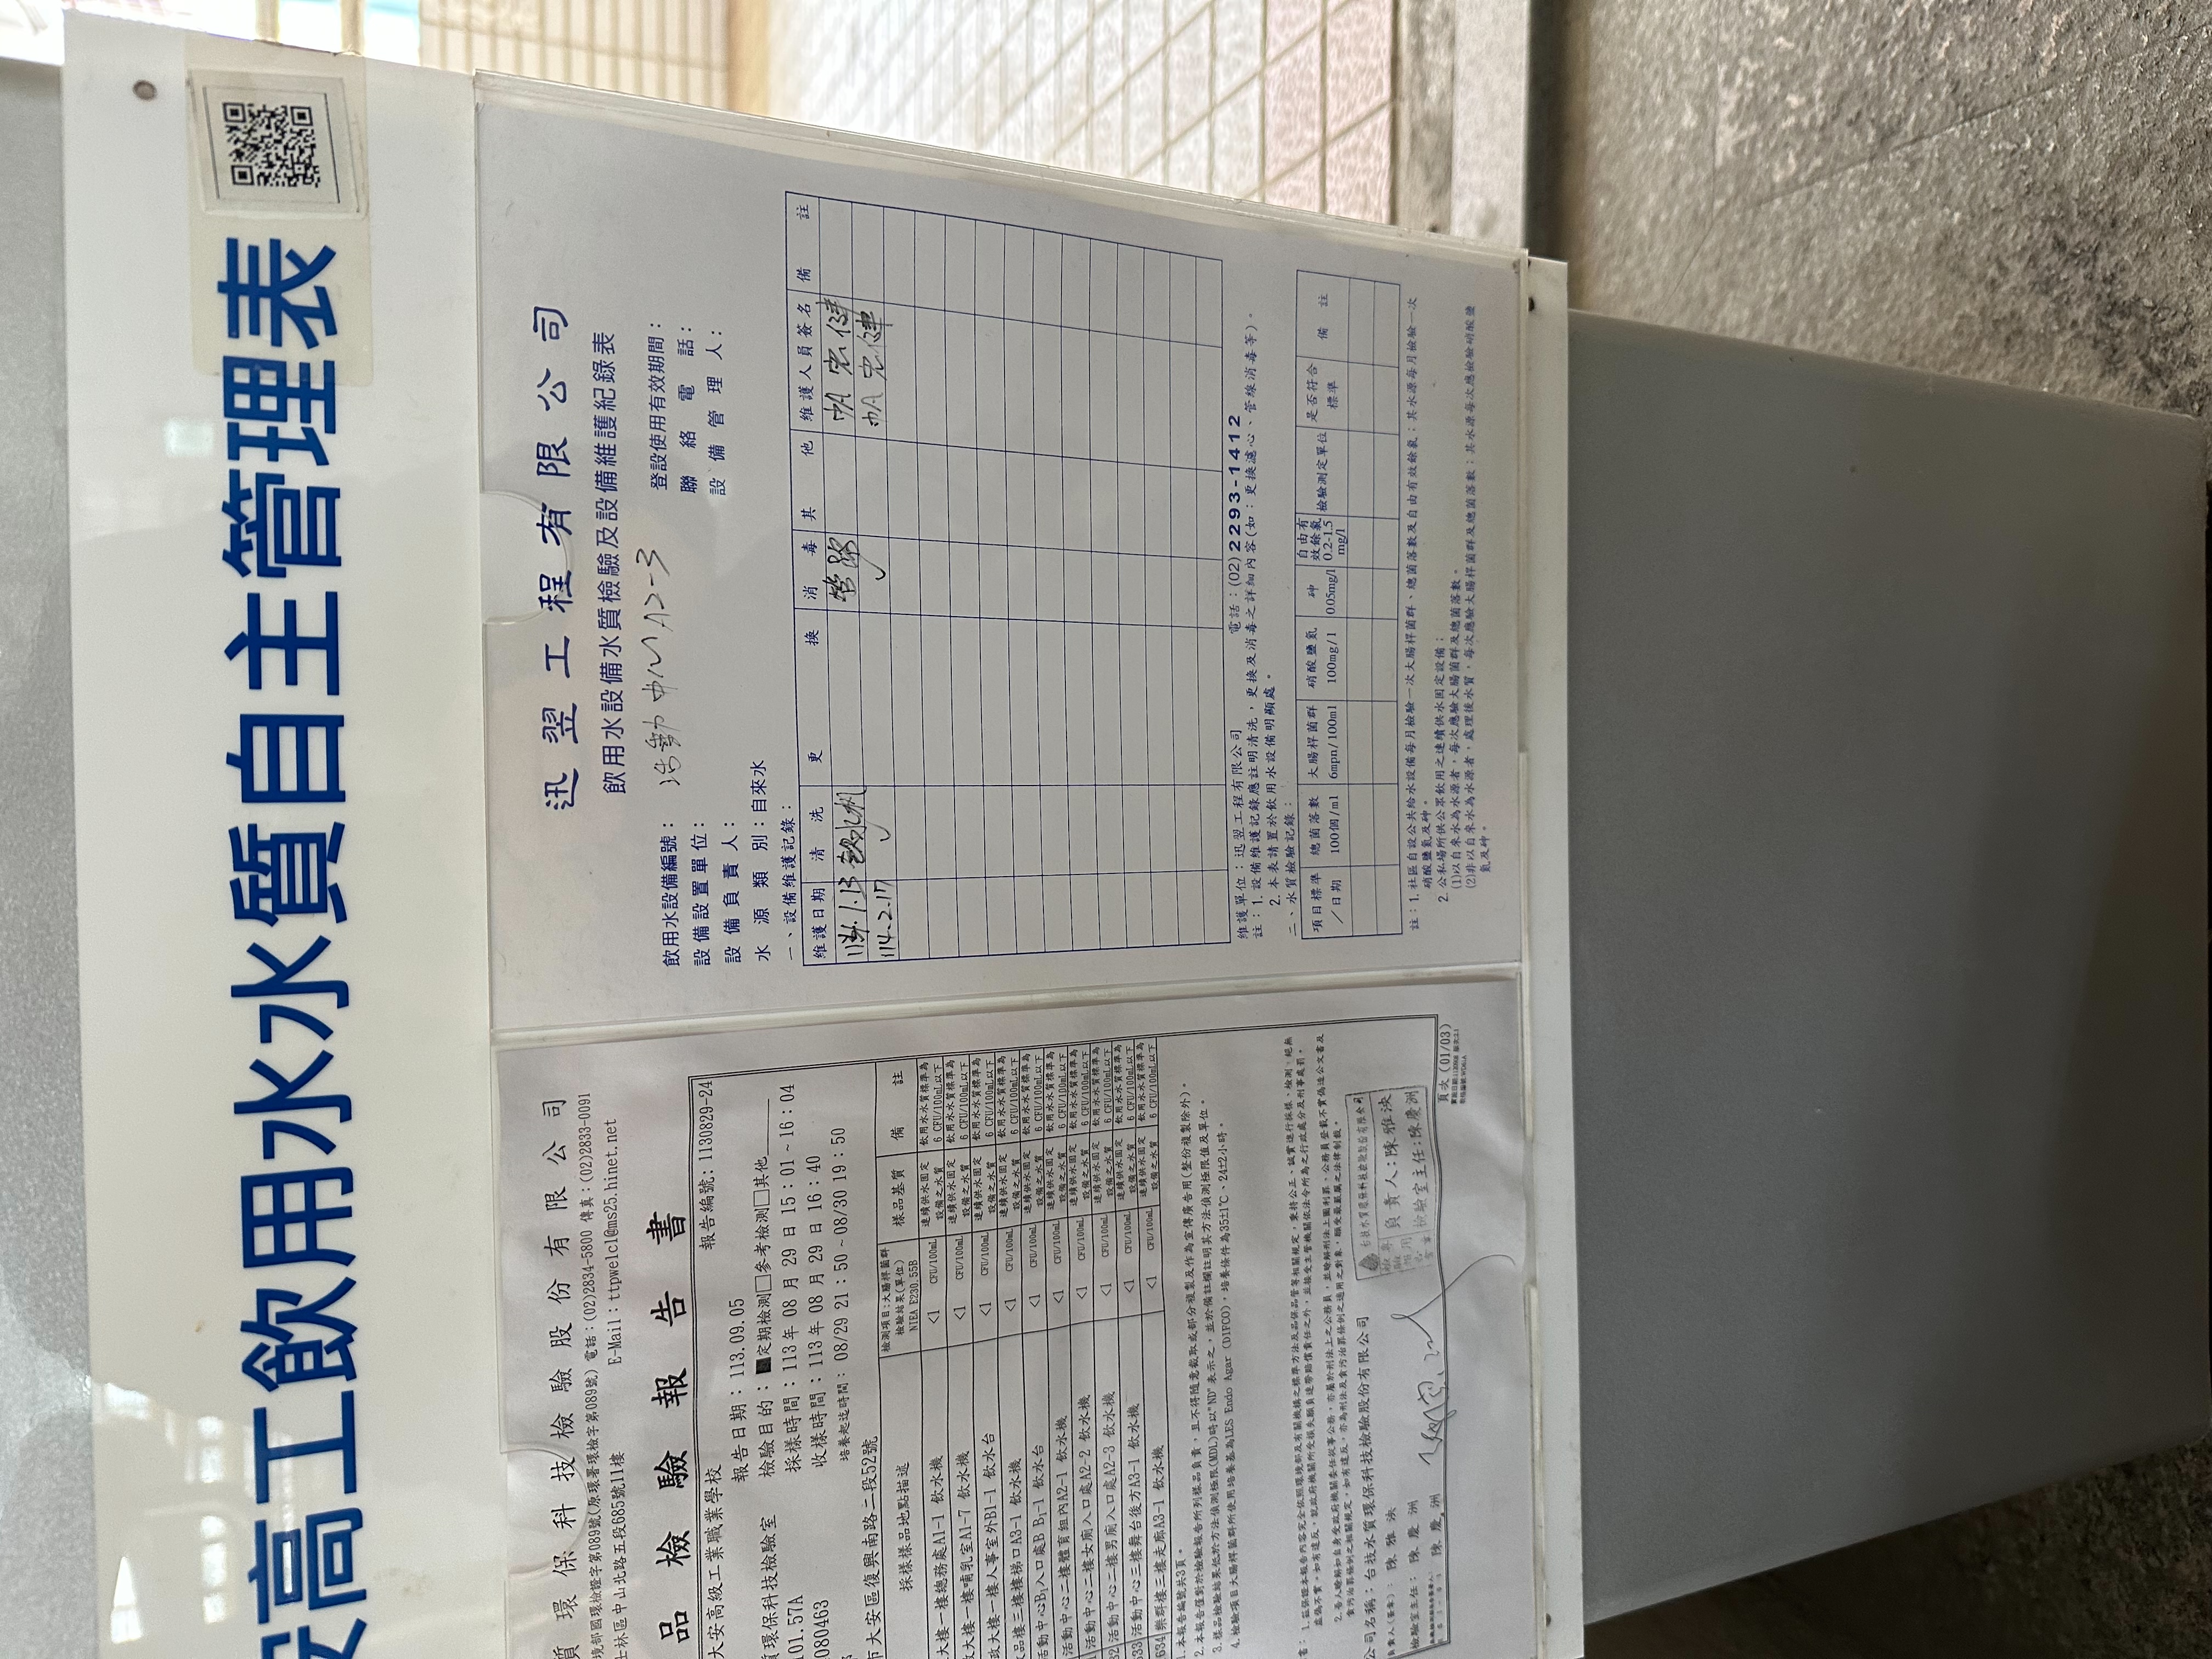 高工飲用水水質自主管理表
質環保科技檢驗股份有限公司
境部國環檢證字第089號(原環署環檢字第089號) 電話:(02)2834-5800 傳真:(02)2833-0091
士林區中山北路五段685號11樓
E-Mail:ttpwelcl@ms25.hinet.net
品檢驗報告書
報告編號:1130829-24
大安高級工業職業學校
報告日期:113.09.05
質環保科技檢驗室
檢驗目的:■定期檢測□參考檢測□其他
101.57A
採樣時間:113年08月29日15:01~16:04
080463
收樣時間:113年08月29日16:40
培養起迄時間:08/29 21:50~08/30 19:50
市大安區復興南路二段52號
採樣樣品地點描述
檢測項目:大腸桿菌群
檢驗結果(單位)
NIEA E230.55B
樣品基質
備 註
大樓一樓總務處A1-1 飲水機 <1 CFU/100mL 連續供水固定設備之水質 飲用水水質標準為6 CFU/100mL以下
大樓一樓哺乳室A1-7 飲水機 <1 CFU/100mL 連續供水固定設備之水質 飲用水水質標準為6 CFU/100mL以下
政大樓一樓人事室外B1-1 飲水台 <1 CFU/100mL 連續供水固定設備之水質 飲用水水質標準為6 CFU/100mL以下
品樓三樓樓梯口A3-1 飲水機 <1 CFU/100mL 連續供水固定設備之水質 飲用水水質標準為6 CFU/100mL以下
活動中心B1入口處B B1-1 飲水台 <1 CFU/100mL 連續供水固定設備之水質 飲用水水質標準為6 CFU/100mL以下
活動中心二樓體育組內A2-1 飲水機 <1 CFU/100mL 連續供水固定設備之水質 飲用水水質標準為6 CFU/100mL以下
活動中心二樓女廁入口處A2-2 飲水機 <1 CFU/100mL 連續供水固定設備之水質 飲用水水質標準為6 CFU/100mL以下
活動中心二樓男廁入口處A2-3 飲水機 <1 CFU/100mL 連續供水固定設備之水質 飲用水水質標準為6 CFU/100mL以下
活動中心三樓舞台後方A3-1 飲水機 <1 CFU/100mL 連續供水固定設備之水質 飲用水水質標準為6 CFU/100mL以下
樂群樓三樓走廊A3-1 飲水機 <1 CFU/100mL 連續供水固定設備之水質 飲用水水質標準為6 CFU/100mL以下
1.本報告編號共3頁。
2.本報告僅對於檢驗報告所列樣品負責,且不得隨意截取或部分複製及作為宣傳廣告用(整份複製除外)。
3.樣品檢驗結果低於方法偵測極限(MDL)時以"ND"表示之,並於備註欄註明其方法偵測極限值及單位。
4.檢驗項目大腸桿菌群所使用培養基為LES Endo Agar (DIFCO),培養條件為35±1℃、24±2小時。
公司名稱:台技水質環保科技檢驗股份有限公司
負責人:陳雅泱
檢驗室主任:陳慶洲
檢驗室主任:陳慶洲
頁次(01/03)
迅翌工程有限公司
飲用水設備水質檢驗及設備維護紀錄表
飲用水設備編號: 活動中心A2-3 登設使用有效期間:
設備設置單位: 聯絡電話:
設備負責人: 設備管理人:
水源類別:自來水
一、設備維護記錄:
維護日期 清洗 更換 消毒 其他 維護人員簽名 備註
114.1.13 飲水機 管路
114.2.17 ✓ ✓
維護單位:迅翌工程有限公司 電話:(02)2293-1412
註:1.設備維護記錄應註明清洗,更換及消毒之詳細內容(如:更換濾心、管線消毒等)。
2.本表請置於飲用水設備明顯處。
二、水質檢驗記錄:
項目標準/日期 總菌落數100個/ml 大腸桿菌群6mpn/100ml 硝酸鹽氮100mg/l 砷0.05mg/l 自由有效餘氯0.2-1.5mg/l 檢驗測定單位 是否符合標準 備註
註:1.社區自設公共給水設備每月檢驗一次大腸桿菌群、總菌落數及自由有效餘氯;其水源每月檢驗一次
硝酸鹽氮及砷。
2.公私場所供公眾飲用之連續供水固定設備:
(1)以自來水為水源者,每次應驗大腸桿菌群及總菌落數。
(2)非以自來水為水源者,處理後水質,每次應驗大腸桿菌群及總菌落數;其水源每次應檢驗硝酸鹽
氮及砷。